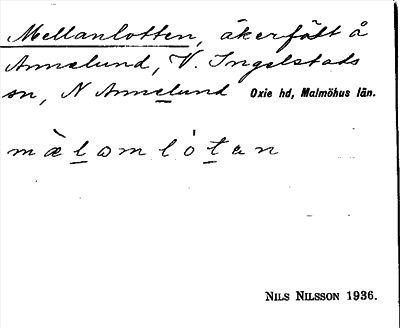 Mellanlotten, åkerfält å
Annelund, V. Ingelstads
sn, N Annelund Oxie hd, Malmöhus län.
mæ̀lamlótan
NILS NILSSON 1936.